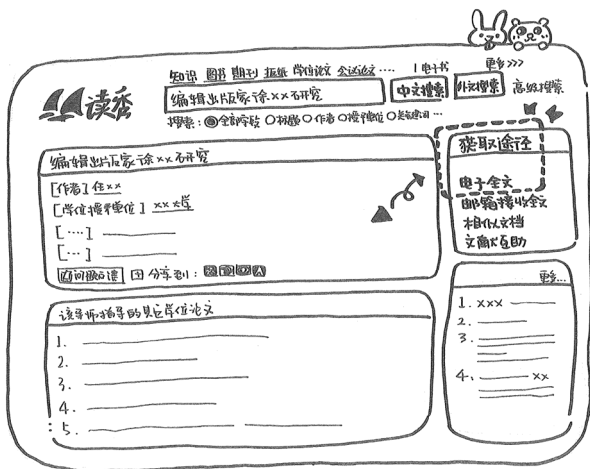 知识 图书 期刊 报纸 学位论文 会议论文 ···· | 电子书 更多>>>
读秀
编辑出版家徐××研究 中文搜索 外文搜索 高级搜索
搜索: 全部字段 标题 作者 授予单位 关键词 ···
编辑出版家徐××研究
[作者] 任××
[学位授予单位] ××大学
[····]
[···]
分享到:
获取途径
电子全文
邮箱接收全文
相似文档
文献互助
该导师指导的其它学位论文
1.
2.
3.
4.
5.
更多...
1. ×××
2.
3.
4. ××